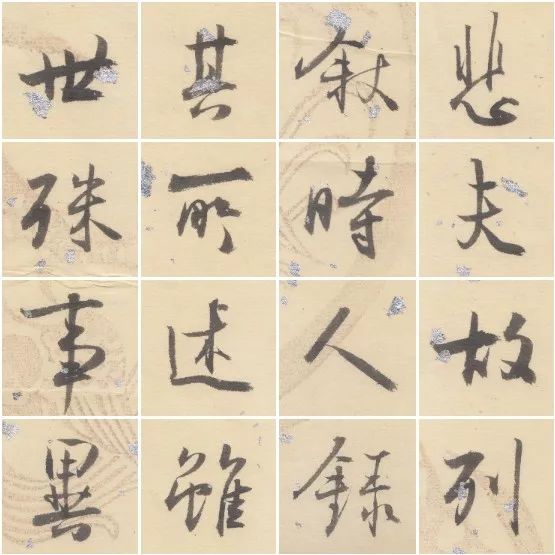 悲夫故列
叙時人録
其所述雖
世殊事異